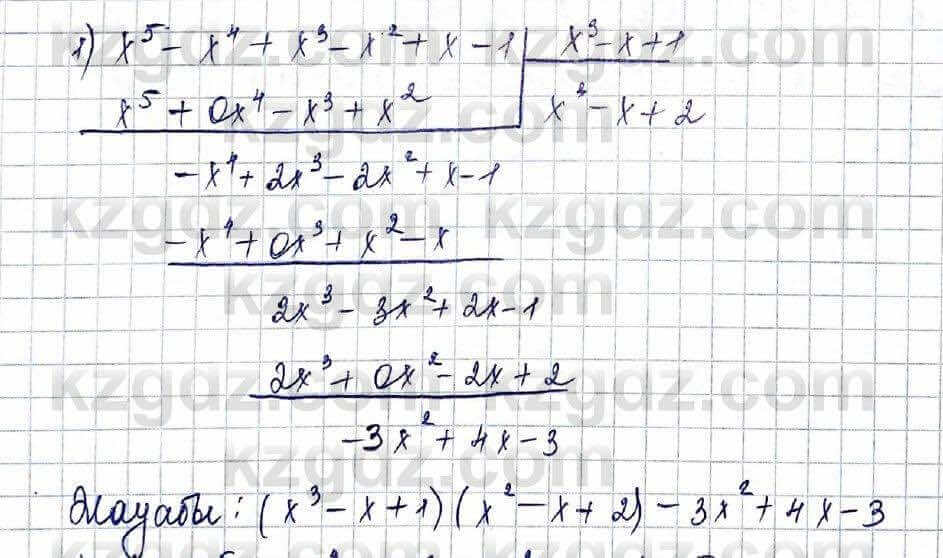 1) x⁵ - x⁴ + x³ - x² + x - 1 | x³ - x + 1
x⁵ + 0x⁴ - x³ + x² | x² - x + 2
-x⁴ + 2x³ - 2x² + x - 1
-x⁴ + 0x³ + x² - x
2x³ - 3x² + 2x - 1
2x³ + 0x² - 2x + 2
-3x² + 4x - 3
Жауабы: (x³ - x + 1)(x² - x + 2) - 3x² + 4x - 3
kzgdz.com
kzgdz.com kzgdz.com
kzgdz.com
kzgdz.com kzgdz.com
kzgdz.com